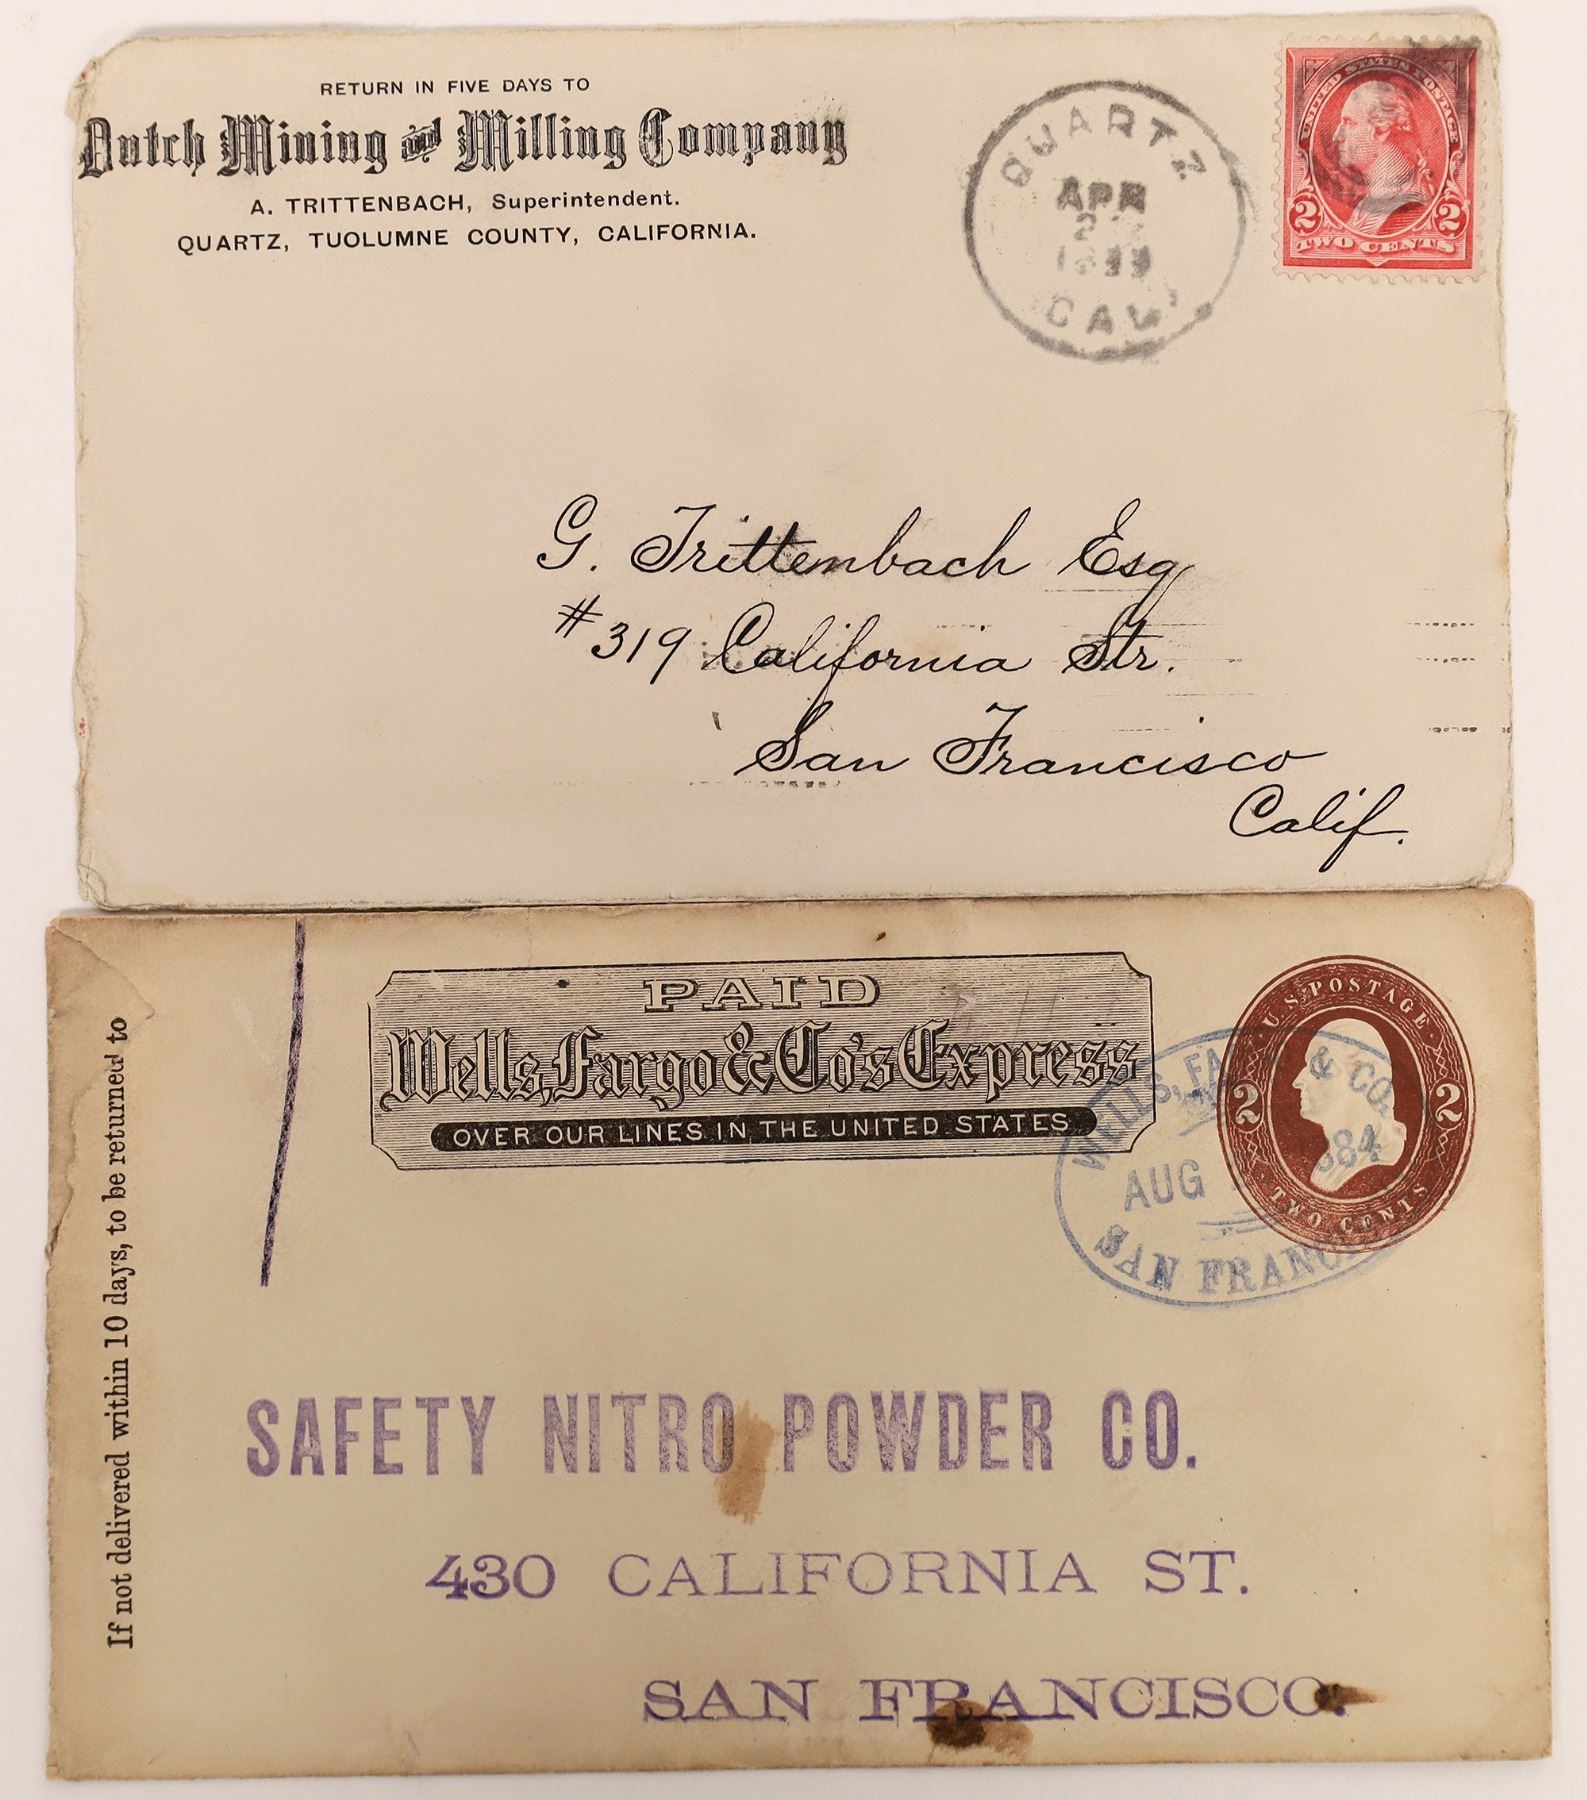 RETURN IN FIVE DAYS TO
Dutch Mining and Milling Company
A. TRITTENBACH, Superintendent.
QUARTZ, TUOLUMNE COUNTY, CALIFORNIA.
QUARTZ
APR
CAL
UNITED STATES POSTAGE
2 2
TWO CENTS
G. Trittenbach Esq
#319 California Str.
San Francisco
Calif.
If not delivered within 10 days, to be returned to
PAID
Wells, Fargo & Co's Express
OVER OUR LINES IN THE UNITED STATES
U.S. POSTAGE
2 2
TWO CENTS
WELLS, FARGO & CO.
AUG
SAN FRANC
SAFETY NITRO POWDER CO.
430 CALIFORNIA ST.
SAN FRANCISCO.